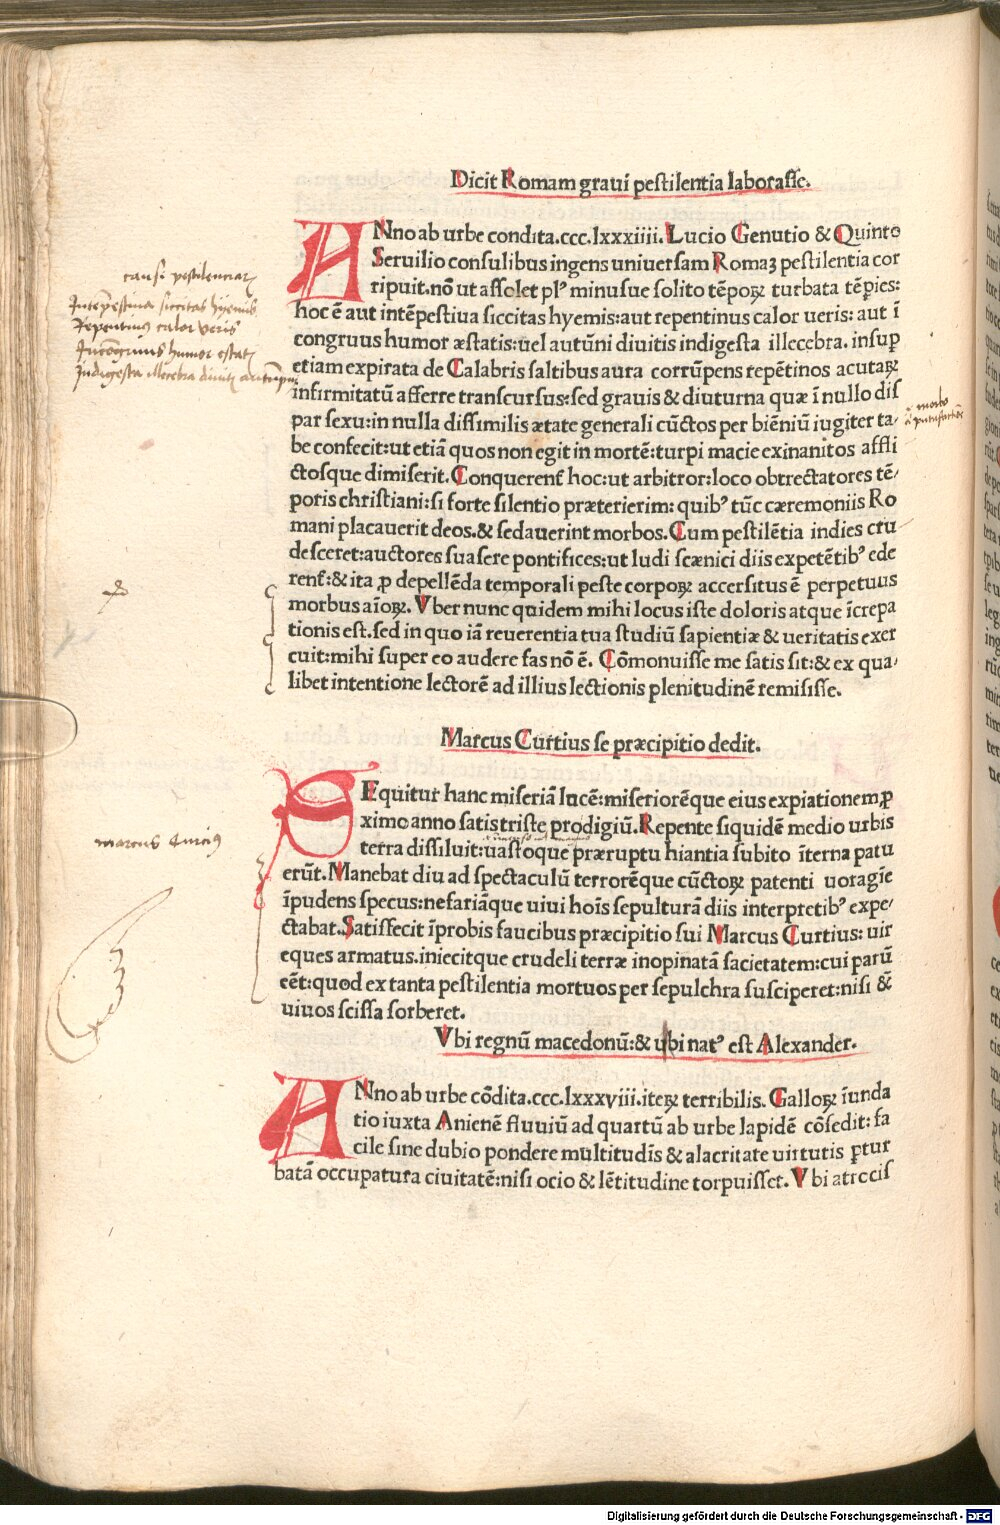 Dicit Romam graui pestilentia laborasse.
ANno ab urbe condita.ccc.lxxxiiii. Lucio Genutio & Quinto
Seruilio consulibus ingens uniuersam Romaꝫ pestilentia cor
ripuit.nō ut assolet plꝰ minusue solito tēpoꝝ turbata tēpies:
hoc ē aut intēpestiua siccitas hyemis:aut repentinus calor ueris: aut ī
congruus humor æstatis:uel autūni diuitis indigesta illecebra. insuꝑ
etiam expirata de Calabris saltibus aura corrūpens repētinos acutaꝝ
infirmitatū afferre transcursus:sed grauis & diuturna quæ ī nullo dis
par sexu:in nulla dissimilis ætate generali cūctos per biēniū iugiter ta-
be confecit:ut etiā quos non egit in mortē:turpi macie exinanitos affli
ctosque dimiserit. Conquerenť hoc:ut arbitror:loco obtrectatores tē-
poris christiani:si forte silentio præterierim: quibꝰ tūc cæremoniis Ro
mani placauerit deos.& sedauerint morbos. Cum pestilētia indies cru
desceret:auctores suasere pontifices:ut ludi scænici diis expetētibꝰ ede
renť:& ita ꝓ depellēda temporali peste corpoꝝ accersitus ē perpetuus
morbus aīoꝝ. Vber nunc quidem mihi locus iste doloris atque īcrepa
tionis est.sed in quo iā reuerentia tua studiū sapientiæ & ueritatis exer
cuit:mihi super eo audere fas nō ē. Cōmonuisse me satis sit:& ex qua-
libet intentione lectorē ad illius lectionis plenitudinē remisisse.
Marcus Curtius se præcipitio dedit.
SEquitur hanc miseriā lucē:miseriorēque eius expiationem ꝓ
ximo anno satis triste prodigiū. Repente siquidē medio urbis
terra dissiluit:uastoque præruptu hiantia subito īterna patu
erūt. Manebat diu ad spectaculū terrorēque cūctoꝝ patenti uoragīe
īpudens specus:nefariāque uiui hoīs sepulturā diis interpretibꝰ expe-
ctabat. Satisfecit īprobis faucibus præcipitio sui Marcus Curtius: uir
eques armatus.iniecitque crudeli terræ inopinatā sacietatem:cui parū
eēt:quod ex tanta pestilentia mortuos per sepulchra susciperet:nisi &
uiuos scissa sorberet.
Vbi regnū macedonū:& ubi natꝰ est Alexander.
ANno ab urbe cōdita.ccc.lxxxviii.iteꝝ terribilis. Galloꝝ īunda
tio iuxta Anienē fluuiū ad quartū ab urbe lapidē cōsedit: fa
cile sine dubio pondere multitudīs & alacritate uirtutis ꝑtur
batā occupatura ciuitatē:nisi ocio & lētitudine torpuisset. Vbi atrocis
Intempestiua siccitas hyemis
Repentinus calor veris
Incongruus humor estatis
marcus Curcius
Digitalisierung gefördert durch die Deutsche Forschungsgemeinschaft - DFG